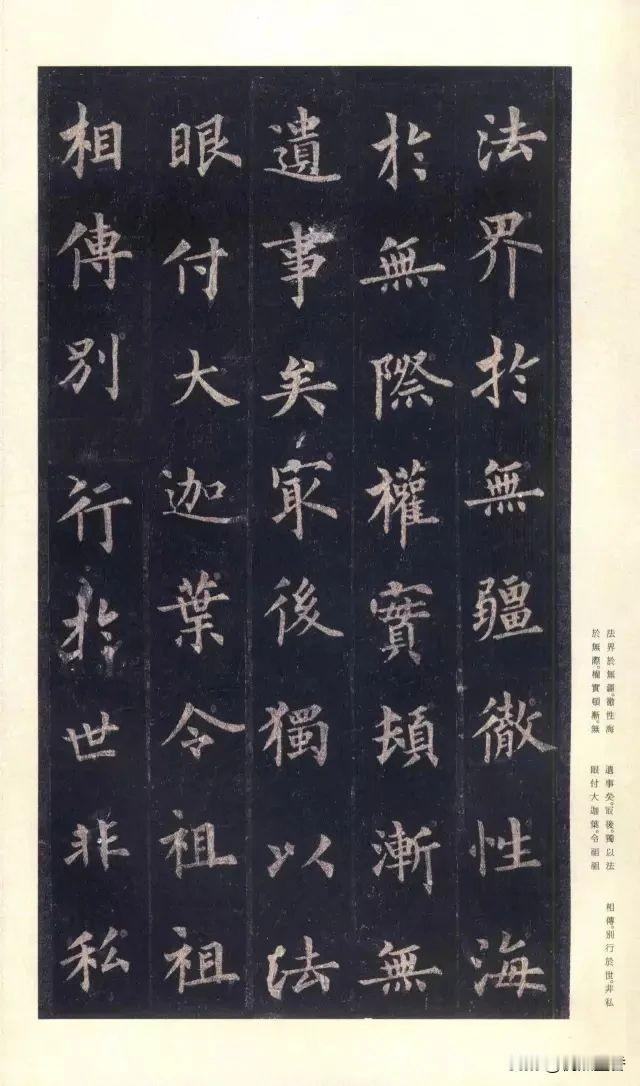 法界於無疆徹性海
於無際權實頓漸無
遺事矣冣後獨以法
眼付大迦葉令祖祖
相傳別行於世非私
法界於無疆。徹性海
於無際。權實頓漸。無
遺事矣。冣後。獨以法
眼付大迦葉。令祖祖
相傳。別行於世。非私